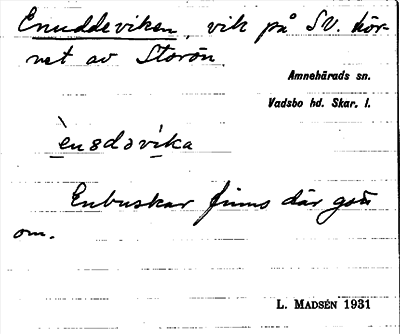 Enuddeviken, vik på SV. hör-
net av Storön.
Amnehärads sn.
Vadsbo hd. Skar. l.
Enbuskar finns där gott
om.
L. MADSÉN 1931